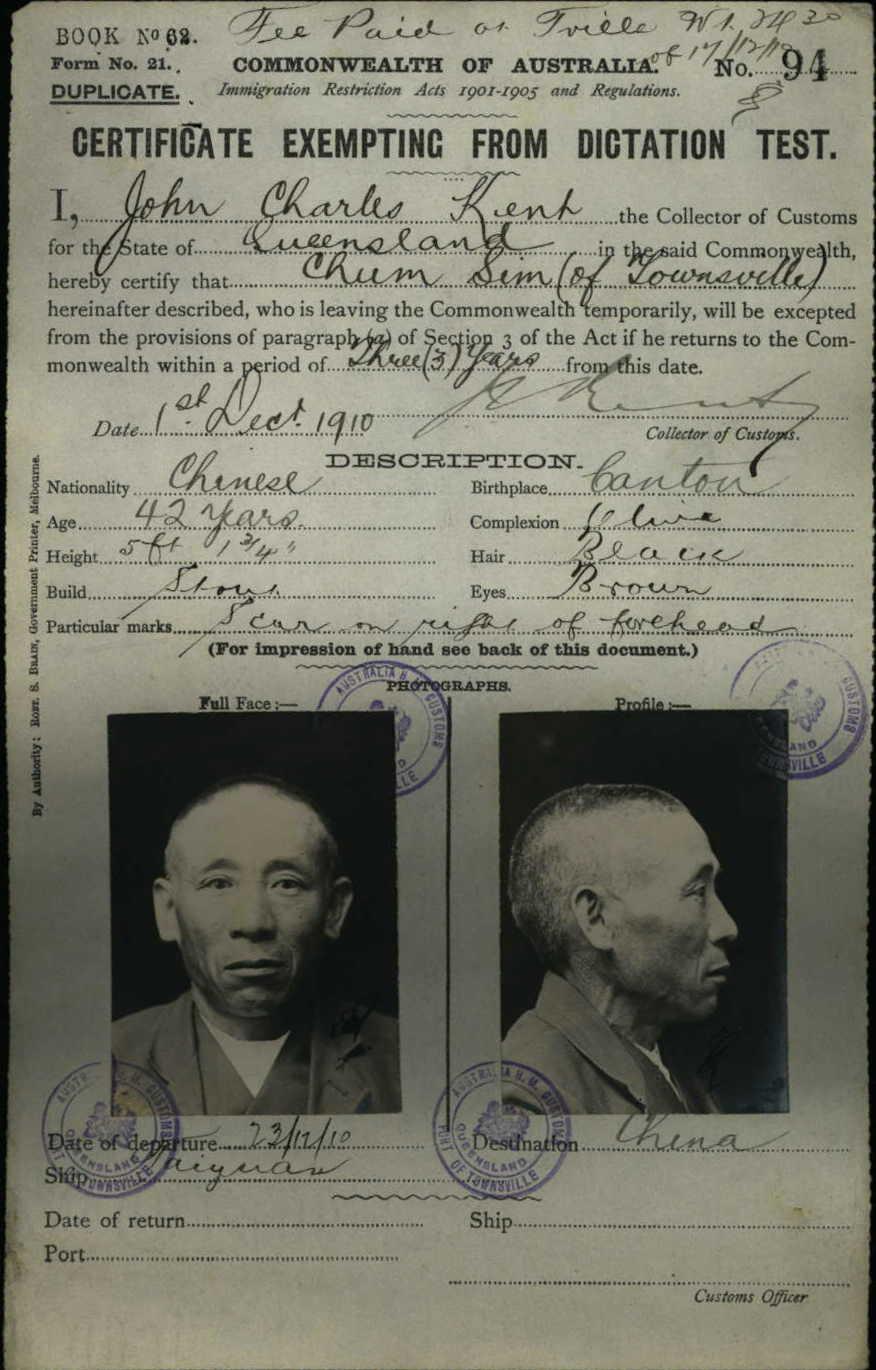 BOOK No 62.
Fee Paid at Tville
of 17/12/10
Form No. 21.
COMMONWEALTH OF AUSTRALIA.
No. 94
DUPLICATE.
Immigration Restriction Acts 1901-1905 and Regulations.
CERTIFICATE EXEMPTING FROM DICTATION TEST.
I, John Charles Kent the Collector of Customs
for the State of Queensland in the said Commonwealth,
hereby certify that Chum Sim (of Townsville)
hereinafter described, who is leaving the Commonwealth temporarily, will be excepted
from the provisions of paragraph (a) of Section 3 of the Act if he returns to the Com-
monwealth within a period of Three (3) Years from this date.
Date 1st Decr. 1910
Collector of Customs.
DESCRIPTION.
Nationality Chinese Birthplace Canton
Age 42 Years. Complexion Olive
Height 5 ft 1 3/4" Hair Black
Build Stout Eyes Brown
Particular marks Scar on right of forehead
(For impression of hand see back of this document.)
PHOTOGRAPHS.
Full Face :— Profile :—
By Authority: ROBT. S. BRAIN, Government Printer, Melbourne.
AUSTRALIA H.M. CUSTOMS
AUSTRALIA H.M. CUSTOMS
PORT OF TOWNSVILLE
QUEENSLAND
Date of departure 23/12/10 Destination China
Ship Taiyuan
Date of return Ship
Port
Customs Officer